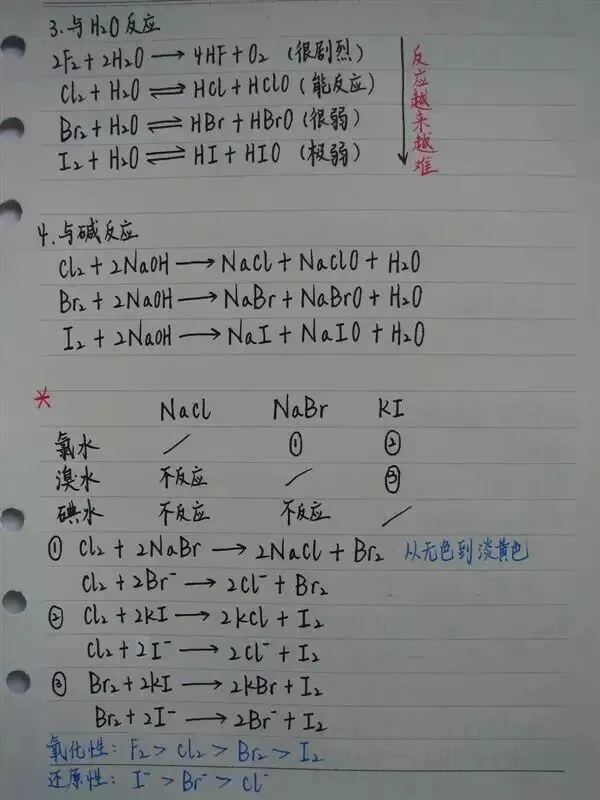 3. 与H₂O反应
2F₂ + 2H₂O ⟶ 4HF + O₂ (很剧烈)
Cl₂ + H₂O ⇌ HCl + HClO (能反应)
Br₂ + H₂O ⇌ HBr + HBrO (很弱)
I₂ + H₂O ⇌ HI + HIO (极弱)
反应越来越难
4. 与碱反应
Cl₂ + 2NaOH ⟶ NaCl + NaClO + H₂O
Br₂ + 2NaOH ⟶ NaBr + NaBrO + H₂O
I₂ + 2NaOH ⟶ NaI + NaIO + H₂O
* NaCl NaBr KI
氯水 ／ ① ②
溴水 不反应 ／ ③
碘水 不反应 不反应 ／
① Cl₂ + 2NaBr ⟶ 2NaCl + Br₂ 从无色到淡黄色
Cl₂ + 2Br⁻ ⟶ 2Cl⁻ + Br₂
② Cl₂ + 2KI ⟶ 2KCl + I₂
Cl₂ + 2I⁻ ⟶ 2Cl⁻ + I₂
③ Br₂ + 2KI ⟶ 2KBr + I₂
Br₂ + 2I⁻ ⟶ 2Br⁻ + I₂
氧化性: F₂ > Cl₂ > Br₂ > I₂
还原性: I⁻ > Br⁻ > Cl⁻